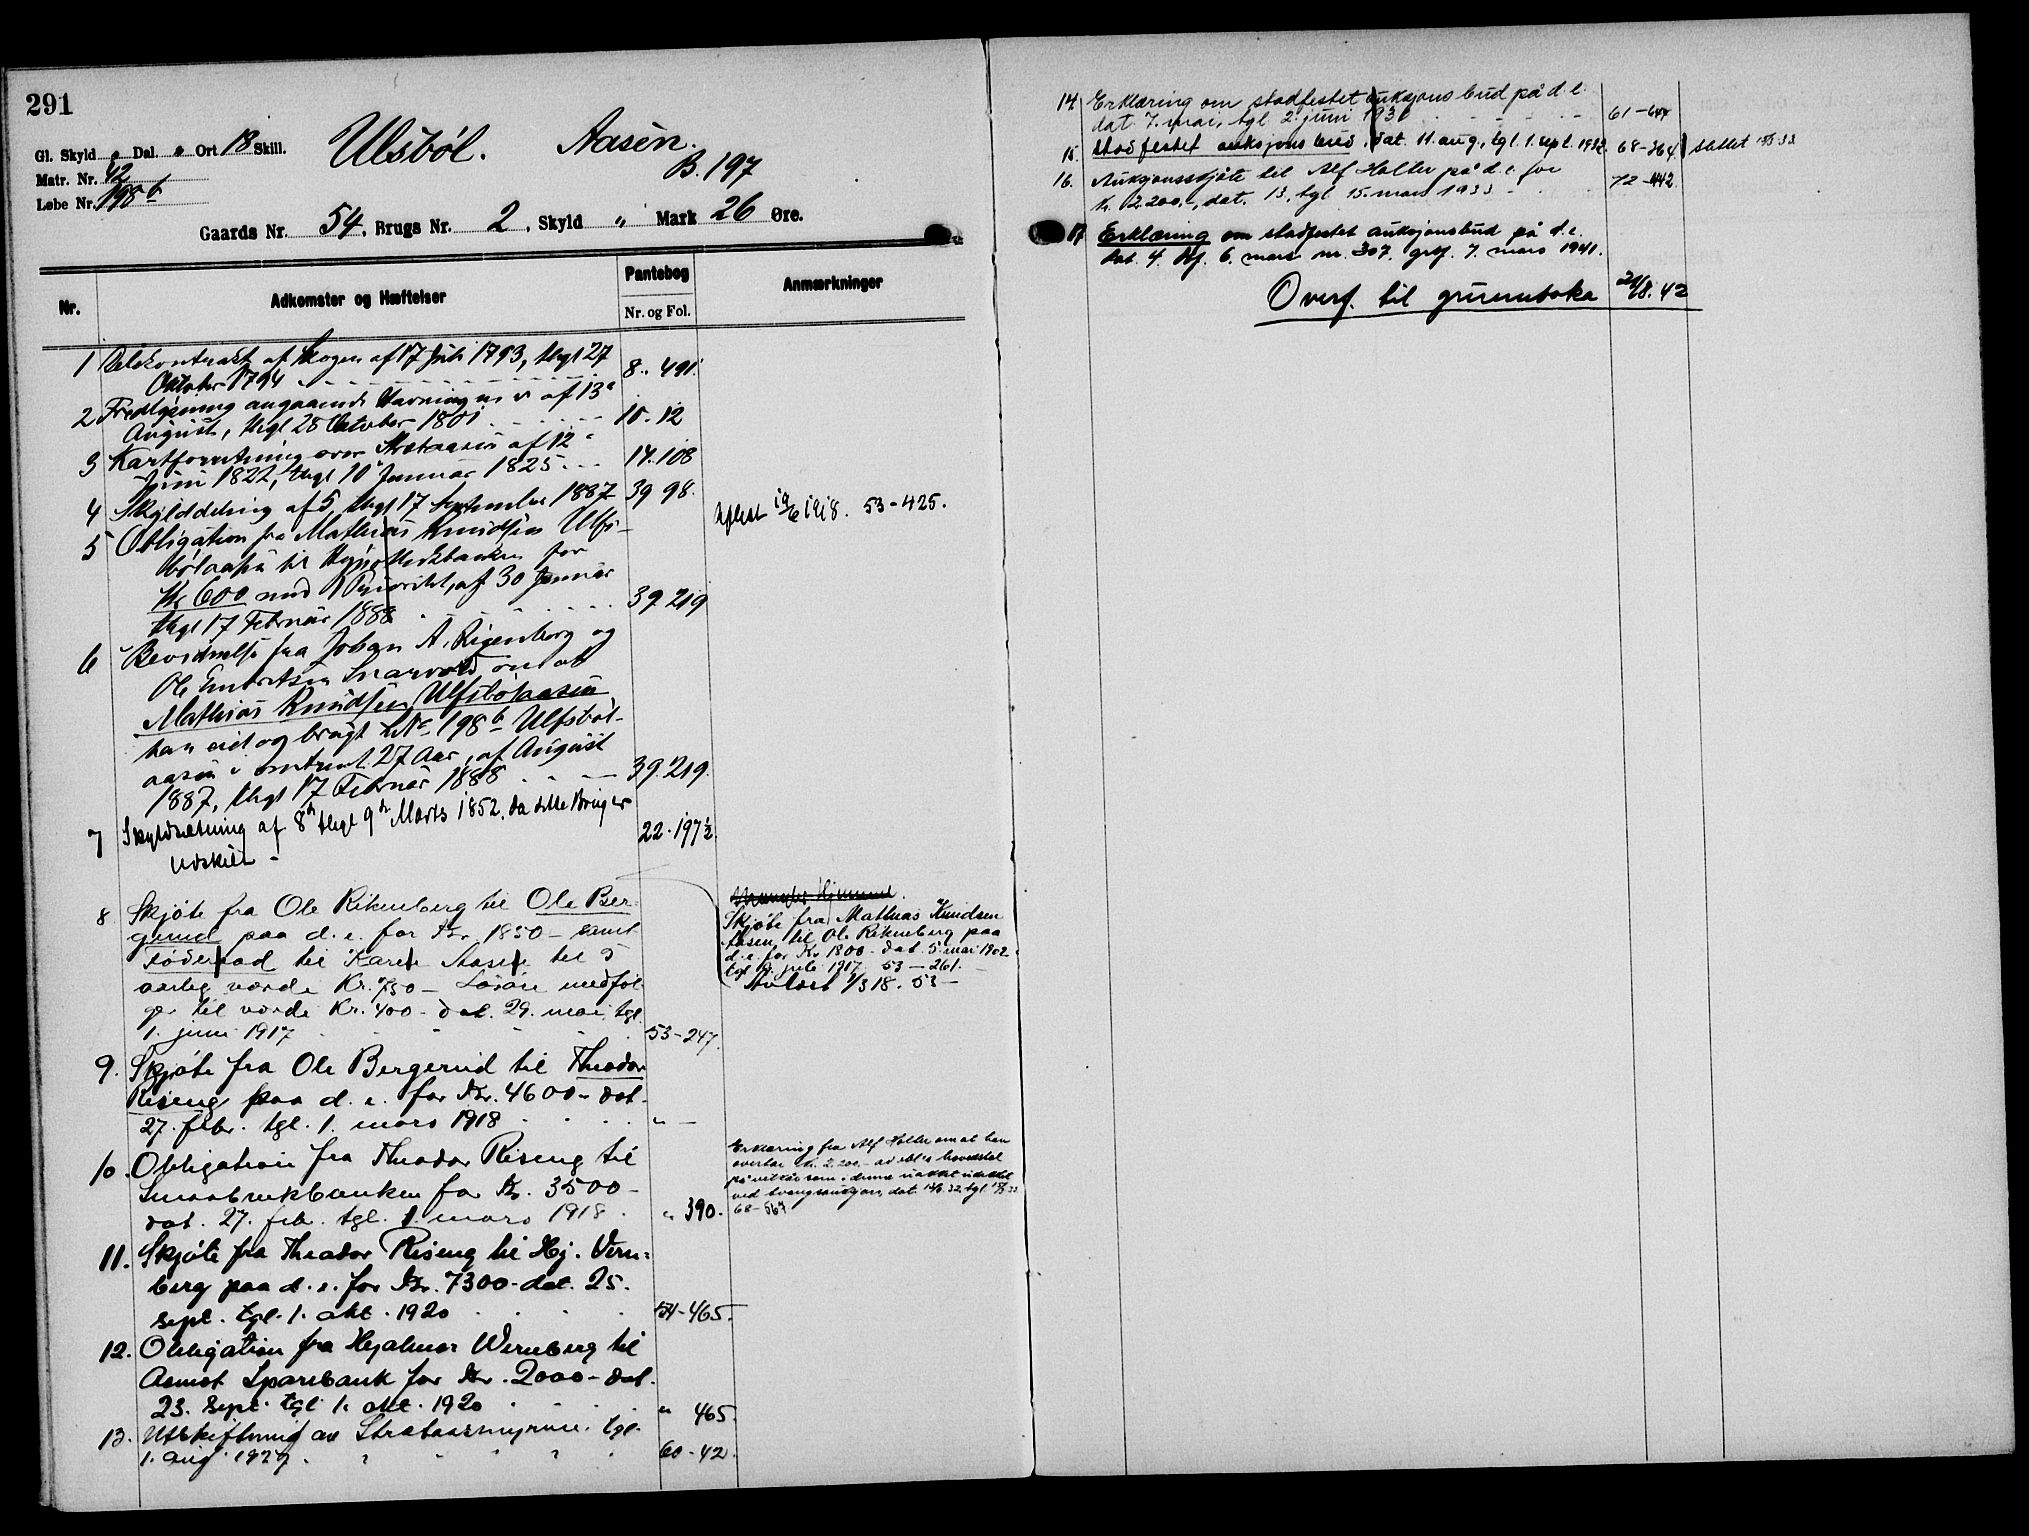 291
Gl. Skyld " Dal. " Ort 18 Skill.
Matr. Nr. 42
Løbe Nr. 198 b
Ulsböl. Aasen.
B. 197
Gaards Nr. 54, Brugs Nr. 2, Skyld " Mark 26 Øre.
Nr.
Adkomster og Hæftelser
Pantebog
Nr. og Fol.
Anmærkninger
1 Delekontrakt af Skogen af 17 Juli 1793, thgl 27
Oktober 1794 8. 491.
2 Fredlysning angaaende Havning m v af 13de
August, thgl 28 Oktober 1801 10. 12
3 Kartforretning over af 12te
Juni 1822, thgl 10 Januar 1825 14. 108
4 Skylddeling af 5, thgl 17 September 1887 39 98.
5 Obligation fra Mathias Knudsen Ulfs-
bölaasen til Hypothekbanken for
Kr 600 med 1 Prioritet, af 30 Januar
thgl 17 Februar 1888 39 219
Aflæst 19/6 1918. 53-425.
6 Bevidnelse fra Johan A. Rigenberg og
Ole Embretsen Snarvold om at
Mathias Knudsen Ulfsbölaasen
har eiet og brugt LNo 198 b Ulfsböl-
aasen i omtrent 27 Aar, af August
1887, thgl 17 Februar 1888 39. 219.
7 Skyldsætning af 8de thgl 9de Marts 1852, da dette Brug er
udskilt - 22. 197½
8 Skjöte fra Ole Rikenberg til Ole Ber-
gerud paa d. e. for Kr. 1850 - samt
föderaad til Karen Aasen til 5
aarlig værde Kr. 750 - Lösöre medföl-
ger til værde Kr. 400 - dat. 29. mai, tgl.
1. juni 1917 53-247.
Skjöte fra Mathias Knudsen
Aasen til Ole Rikenberg paa
d. e. for Kr 1800 - dat. 5. mai 1902
tgl. juli 1917 53-261.
Avlæst 1/3 18. 53 -
9. Skjöte fra Ole Bergerud til Theodor
Riseng paa d. e. for Kr. 4600 - dat.
27. febr. tgl. 1. mars 1918 " -
10 Obligation fra Theodor Riseng til
Smaabrukbanken for Kr. 3500 -
dat. 27. feb. tgl. 1. mars 1918. " 390.
Erklæring fra Alf Holter om at han
overtar kr. 2.200,- av obl.s hovedstol
på vilkår som i denne
ved tvangsauksjon, dat. tgl
68-567
11. Skjöte fra Theodor Riseng til Hj. Vern-
berg paa d. e. for Kr. 7300 - dat. 25.
sept. tgl. 1. okt. 1920 54-465.
12. Obligation fra Hjalmar Wernberg til
Aamot Sparebank for Kr. 2000 - dat.
23. sept. tgl. 1. okt. 1920 " 465.
13. Utskiftning av Strataasmyrene. tgl.
1. aug. 1929. 60-42.
14. Erklæring om stadfestet auksjonsbud på d. e.
dat. 7. mai, tgl 2. juni 1931 61-647
15. Stadfestet auksjonsbud, dat. 11. aug., tgl. 1. sept. 1932. 68-364 slettet 15/3 33
16. Auksjonsskjöte til Alf Holter på d. e. for
kr. 2.200,-, dat. 13, tgl 15. mars 1933 72-442.
17 Erklæring om stadfestet auksjonsbud på d. e.
dat. 4. df. 6. mars nr. 307, grbf. 7. mars 1941.
Overf. til grunnboka 20/8. 42